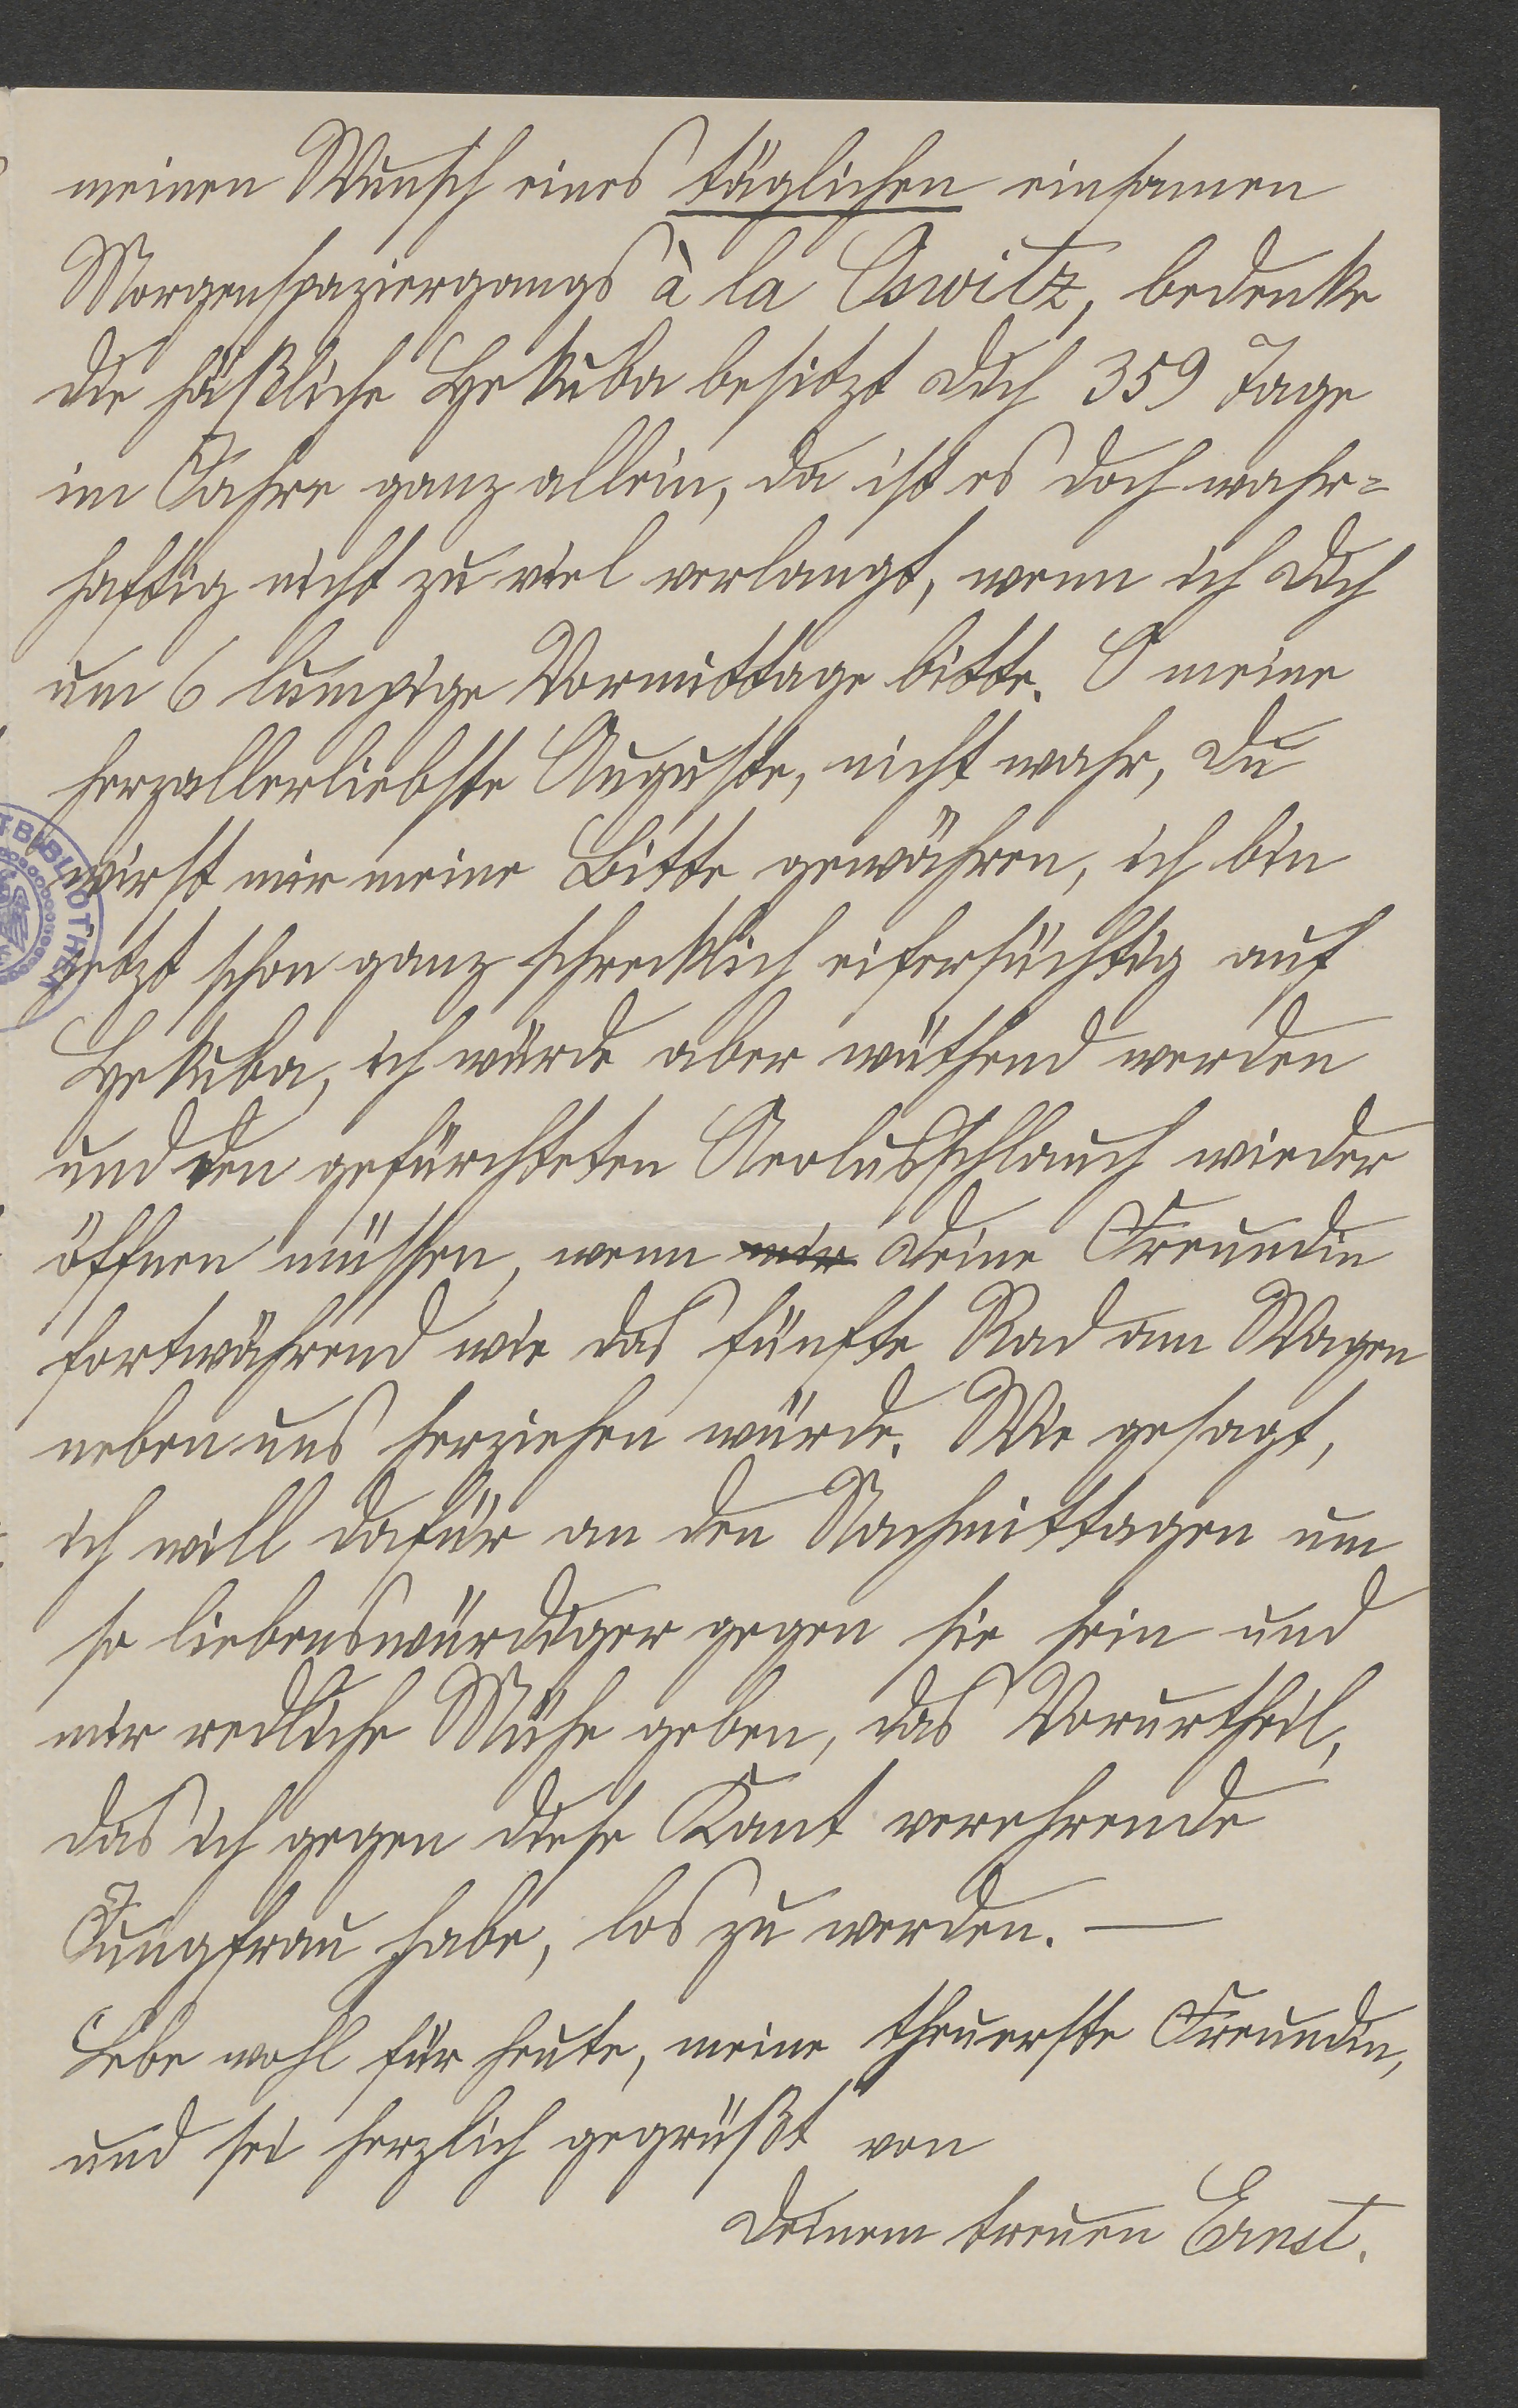 meinen Wunsch eines täglichen einsamen
Morgenspaziergangs à la Oswitz, bedenke
die häßliche Hekuba besitzt Dich 359 Tage
im Jahre ganz allein, da ist es doch wahr=
haftig nicht zu viel verlangt, wenn ich Dich
um 6 lumpige Vormittage bitte. O meine
herzallerliebste Auguste, nicht wahr, Du
wirst mir meine Bitte gewähren, ich bin
jetzt schon ganz schrecklich eifersüchtig auf
Hekuba, ich würde aber wüthend werden
und den gefürchteten Aeolusschlauch wieder
öffnen müssen, wenn mir Deine Freundin
fortwährend wie das fünfte Rad am Wagen
neben uns herziehen würde. Wie gesagt,
ich will dafür an den Nachmittagen um
so liebenswürdiger gegen sie sein und
mir redliche Mühe geben, das Vorurtheil,
das ich gegen diese Kant verehrende
Jungfrau habe, los zu werden. —
Lebe wohl für heute, meine theuerste Freundin,
und sei herzlich gegrüßt von
Deinem treuen Ernst.
TBIBLIOTHEK